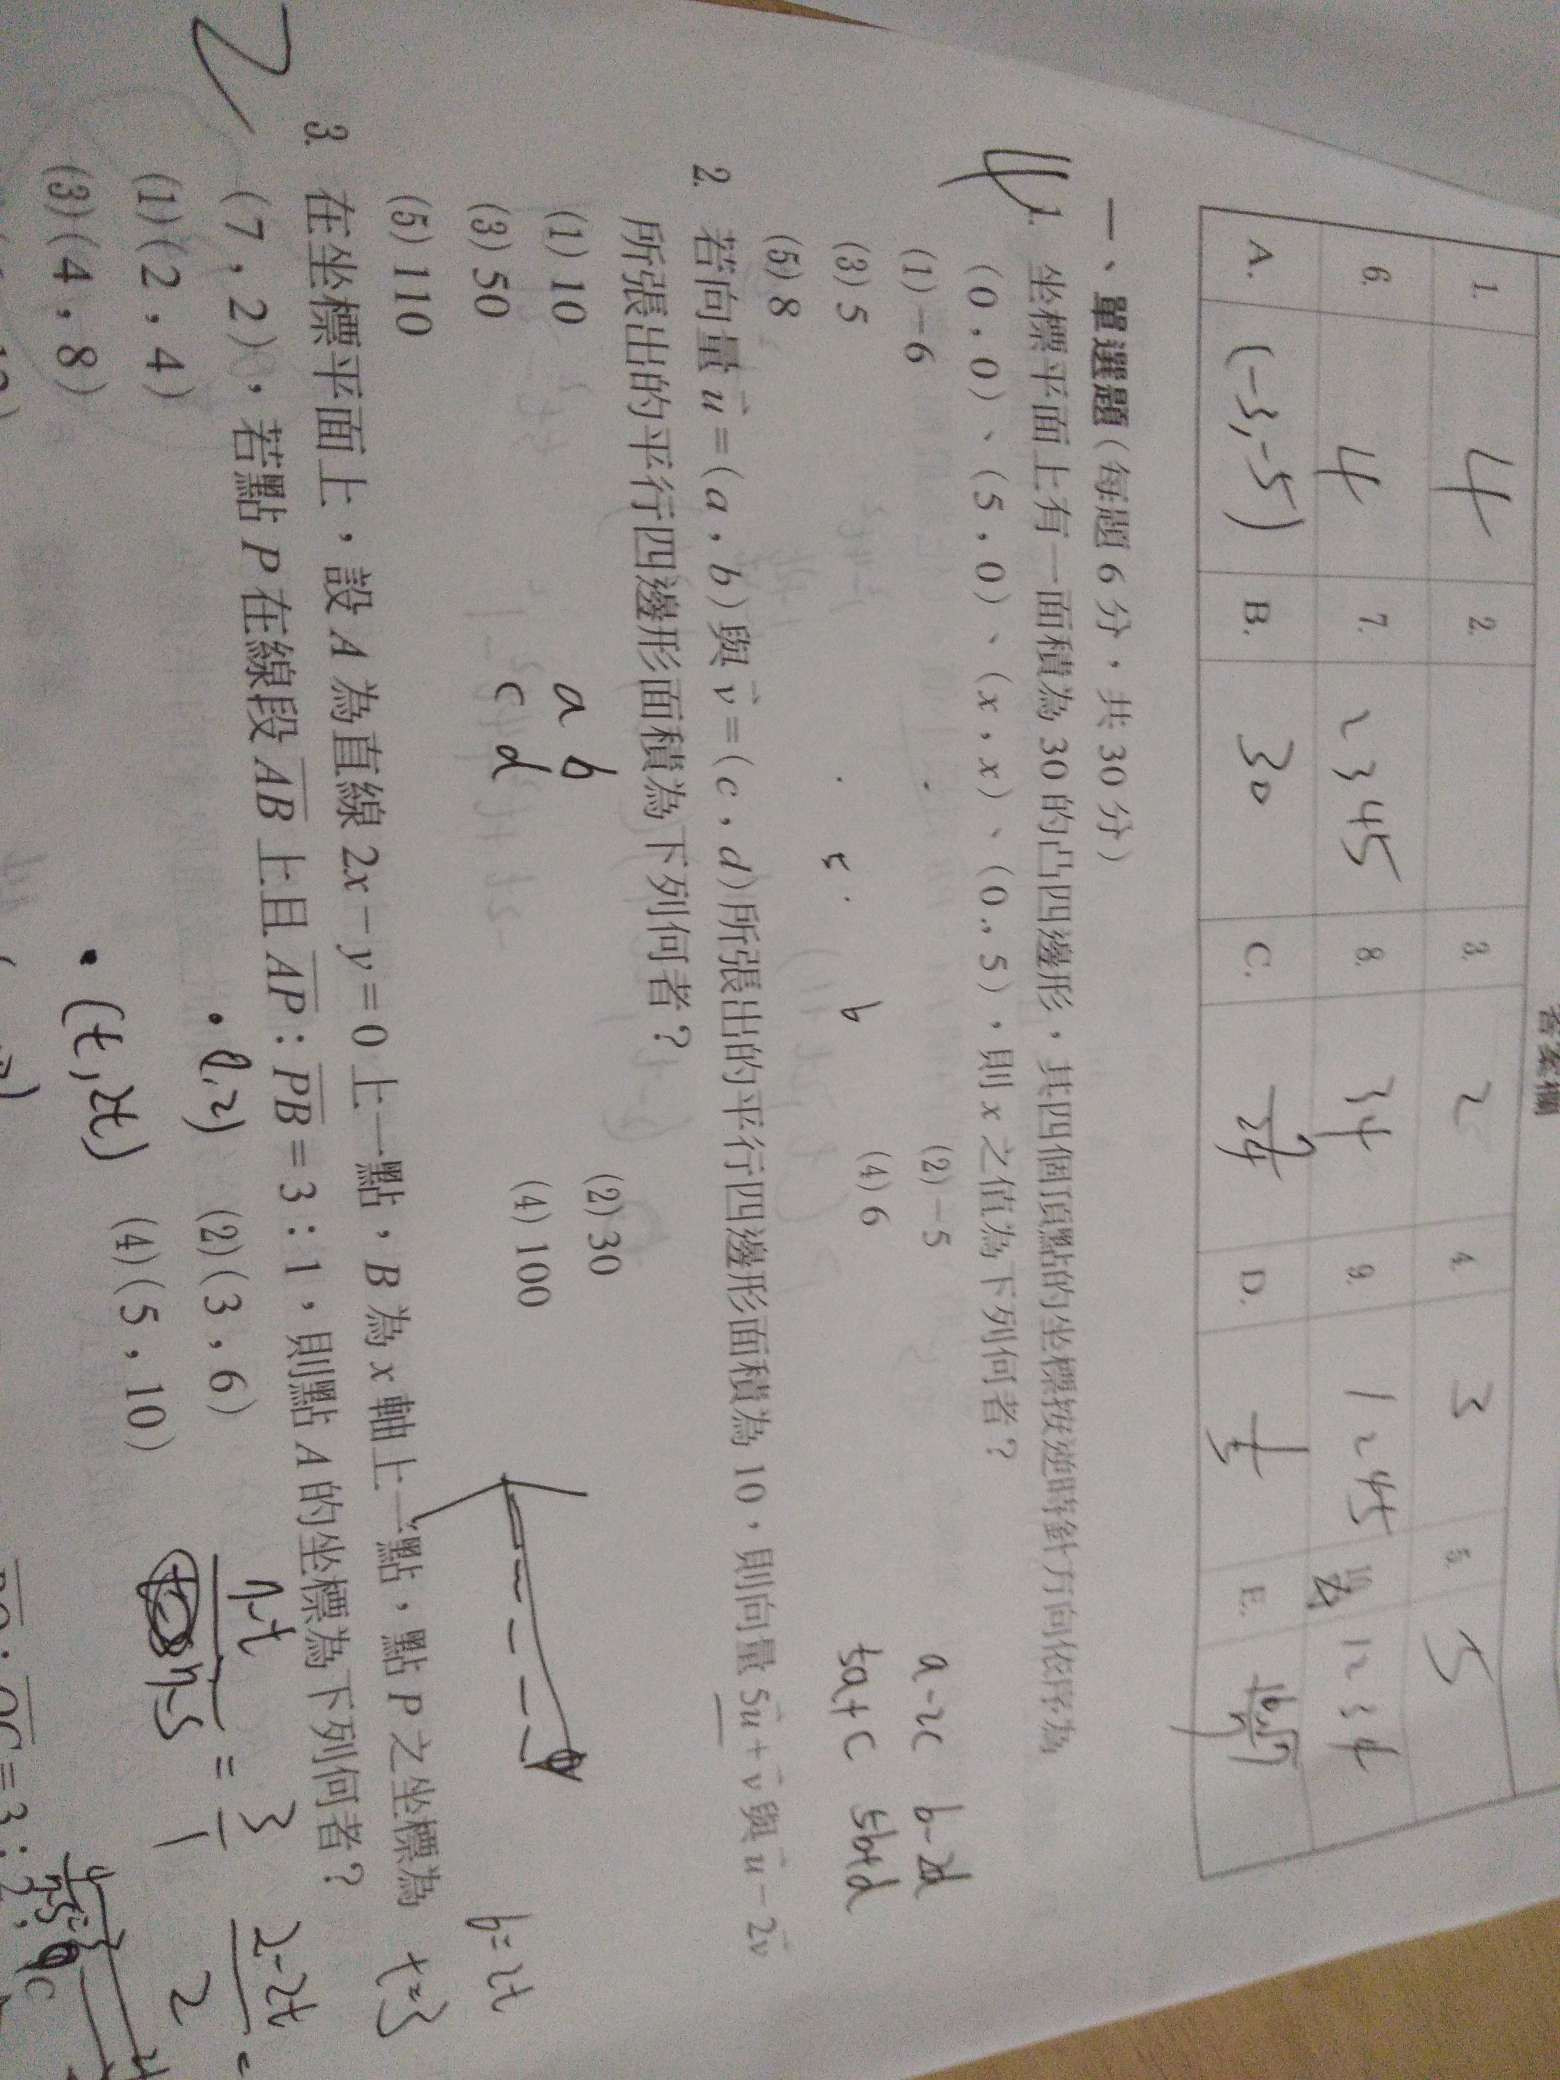 答案欄
1. 4 2. 3. 2 4. 3 5. 5
6. 4 7. 2345 8. 34 9. 1245 10. 1234
A. (-3,-5) B. 30 C. D. E.
一、單選題(每題 6 分，共 30 分)
4 1. 坐標平面上有一面積為 30 的凸四邊形，其四個頂點的坐標按逆時針方向依序為
(0，0)、(5，0)、(x，x)、(0，5)，則 x 之值為下列何者？
(1)-6 (2)-5
(3) 5 (4) 6
(5) 8
a-2c b-2d
5a+c 5b+d
2. 若向量 u⃗=(a，b)與 v⃗=(c，d)所張出的平行四邊形面積為 10，則向量 5u⃗+v⃗ 與 u⃗-2v⃗
所張出的平行四邊形面積為下列何者？
(1) 10 (2) 30
(3) 50 (4) 100
(5) 110
a b
c d
b=2t
t=3
2 3. 在坐標平面上，設 A 為直線 2x-y=0 上一點，B 為 x 軸上一點，點 P 之坐標為
(7，2)，若點 P 在線段 AB 上且 AP：PB=3：1，則點 A 的坐標為下列何者？
(1)(2，4) (2)(3，6)
(3)(4，8) (4)(5，10)
(t,2t)